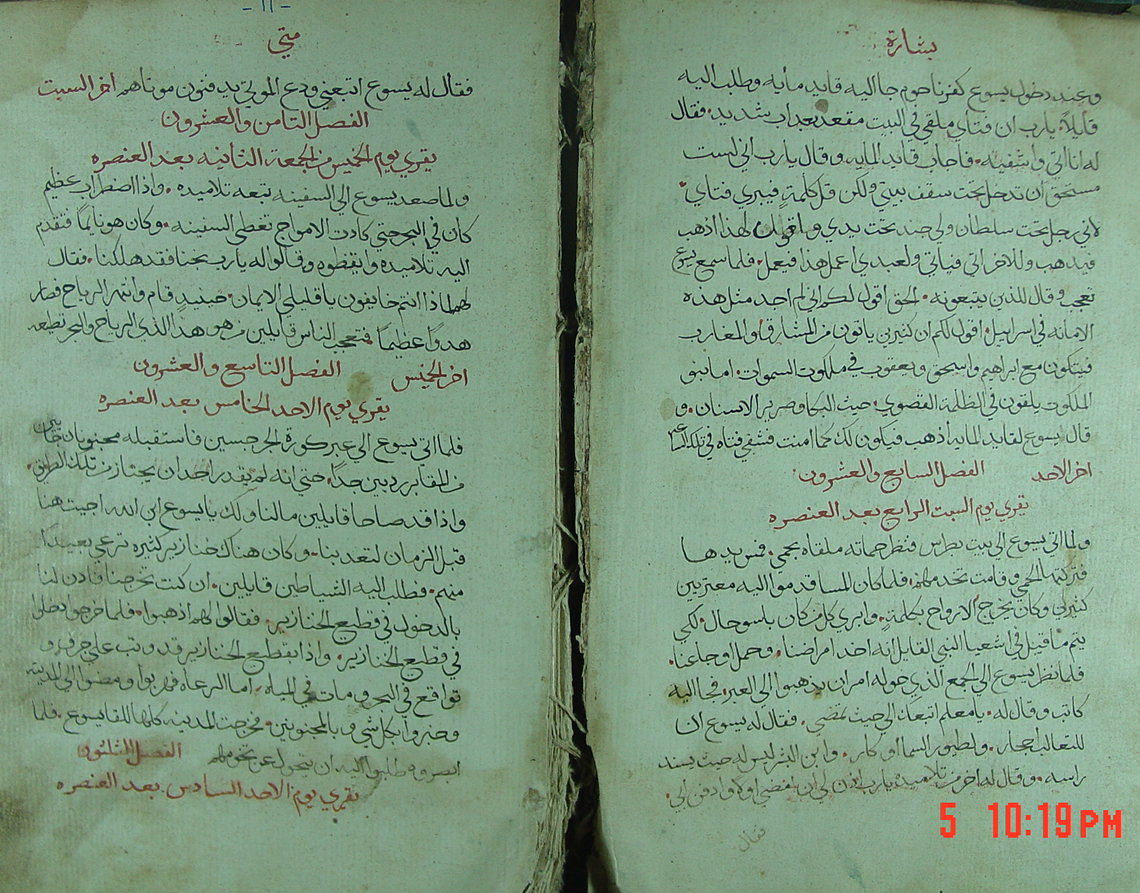 بشارة
وعند دخول يسوع كفرناحوم جا اليه قايد مايه وطلب اليه
قايلاً يا رب ان فتاي ملقي في البيت مقعد بعداب شديد فقال
له انا اتي واشفيه فاجاب قايد المايه وقال يا رب اني لست
مستحق ان تدخل تحت سقف بيتي ولكن قل كلمة فيبري فتاي
لاني رجل تحت سلطان ولي جند تحت يدي واقول لهدا ادهب
فيدهب وللاخر اتي فياتي ولعبدي اعمل هدا فيعمل فلما سمع يسوع
تعجب وقال للذين يتبعونه الحق اقول لكم اني لم اجد مثل هذه
الامانه في اسراييل اقول لكم ان كثيرين ياتون من المشارق والمغارب
فيتكون مع ابراهيم واسحق ويعقوب في ملكوت السموات اما بنو
الملكوت يلقون في الظلمة القصوي حيث البكا وصرير الاسنان و
قال يسوع لقايد المايه ادهب فيكون لك كما امنت فشفي فتاه في تلك الساعه
اخر الاحد الفصل السابع والعشرون
يقري يوم السبت الرابع بعد العنصره
ولما اتي يسوع الي بيت بطرس فنظر حماته ملقاه بحمي فمس يدها
فتركتها الحمي وقامت تخدمهم فلما كان المسا قدموا اليه معتريين
كثيرين وكان يخرج الارواح بكلمة وابري كل من كان بلسو حال لكي
يتم ما قيل في اشعيا النبي القايل انه اخد امراضنا وحمل اوجاعنا
فلما نظر يسوع الي الجمع الذي حوله امر ان يدهبوا الي العبر فجا اليه
كاتب وقال له يا معلم اتبعك الي حيث تمضي فقال له يسوع ان
للثعالب احجار ولطيور السما اوكار وابن البشر ليس له حيث يسند
راسه وقال له اخر من تلاميده يا رب ادن لي ان امضي اولا وادفن ابي
فقال
-١١-
متي
فقال له يسوع اتبعني ودع الموتي يدفنون موتاهم اخر السبت
الفصل الثامن والعشرون
يقري يوم الخميس من الجمعة الثانيه بعد العنصره
ولما صعد يسوع الي السفينه تبعه تلاميده واذا اضطراب عظيم
كان في البحر حتي كادت الامواج تغطي السفينه وكان هو نايمًا فتقدم
اليه تلاميده وايقظوه وقالوا له يا رب نجنا فقد هلكنا فقال
لهم لماذا انتم خايفون يا قليلي الايمان حينيد قام وانتهر الرياح فصار
هدوًا عظيمًا فتعجب الناس قايلين من هو هدا الذي الرياح والبحر تطيعه
اخر الخميس الفصل التاسع والعشرون
يقري يوم الاحد الخامس بعد العنصره
فلما اتي يسوع الي عبر كورة الجرجسين فاستقبله مجنونان خارجين
من المقابر رديين جدًا حتي انه لم يقدر احد ان يجتاز من تلك الطريق
واذا قد صاحا قايلين ما لنا ولك يا يسوع ابن الله اجيت هنا
قبل الزمان لتعدبنا وكان هناك خنازير كثيره ترعي بعيدًا
منهم فطلب اليه الشياطين قايلين ان كنت تخرجنا فادن لنا
بالدخول في قطيع الخنازير فقال لهم ادهبوا فلما خرجوا دخلوا
في قطيع الخنازير واذا بقطيع الخنازير قد وثب علي جرف و
تواقع في البحر ومات في المياه اما الرعاه فهربوا ومضوا الي المدينه
وخبروا بكل شي وبالمجنونين فخرجت المدينه كلها للقا يسوع فلما
ابصروه طلبوا اليه ان يتحول عن تخومهم الفصل الثلثون
يقري يوم الاحد السادس بعد العنصره
5 10:19PM